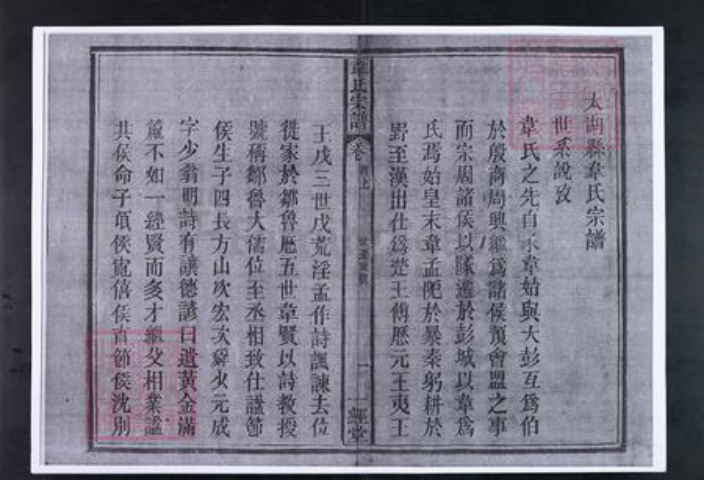 太湖縣韋氏宗譜
世系說攷
韋氏之先自豕韋始與大彭互爲伯
於殷商周興繼爲諸侯預會盟之事
而宗周諸侯以隊遷於彭城以韋爲
氏焉始皇末韋孟阨於暴秦躬耕於
野至漢出仕爲楚王傅歷元王夷王
韋氏宗譜
卷
首上
一
一經堂
王戊三世戊荒淫孟作詩諷諫去位
徙家於鄒魯歷五世韋賢以詩教授
號稱鄒魯大儒位至丞相致仕謚節
侯生子四長方山次宏次舜少元成
字少翁明詩有讓德諺曰遺黃金滿
籯不如一經賢而多才繼父相業謚
共侯命子頃侯寬僖侯育節侯沈別